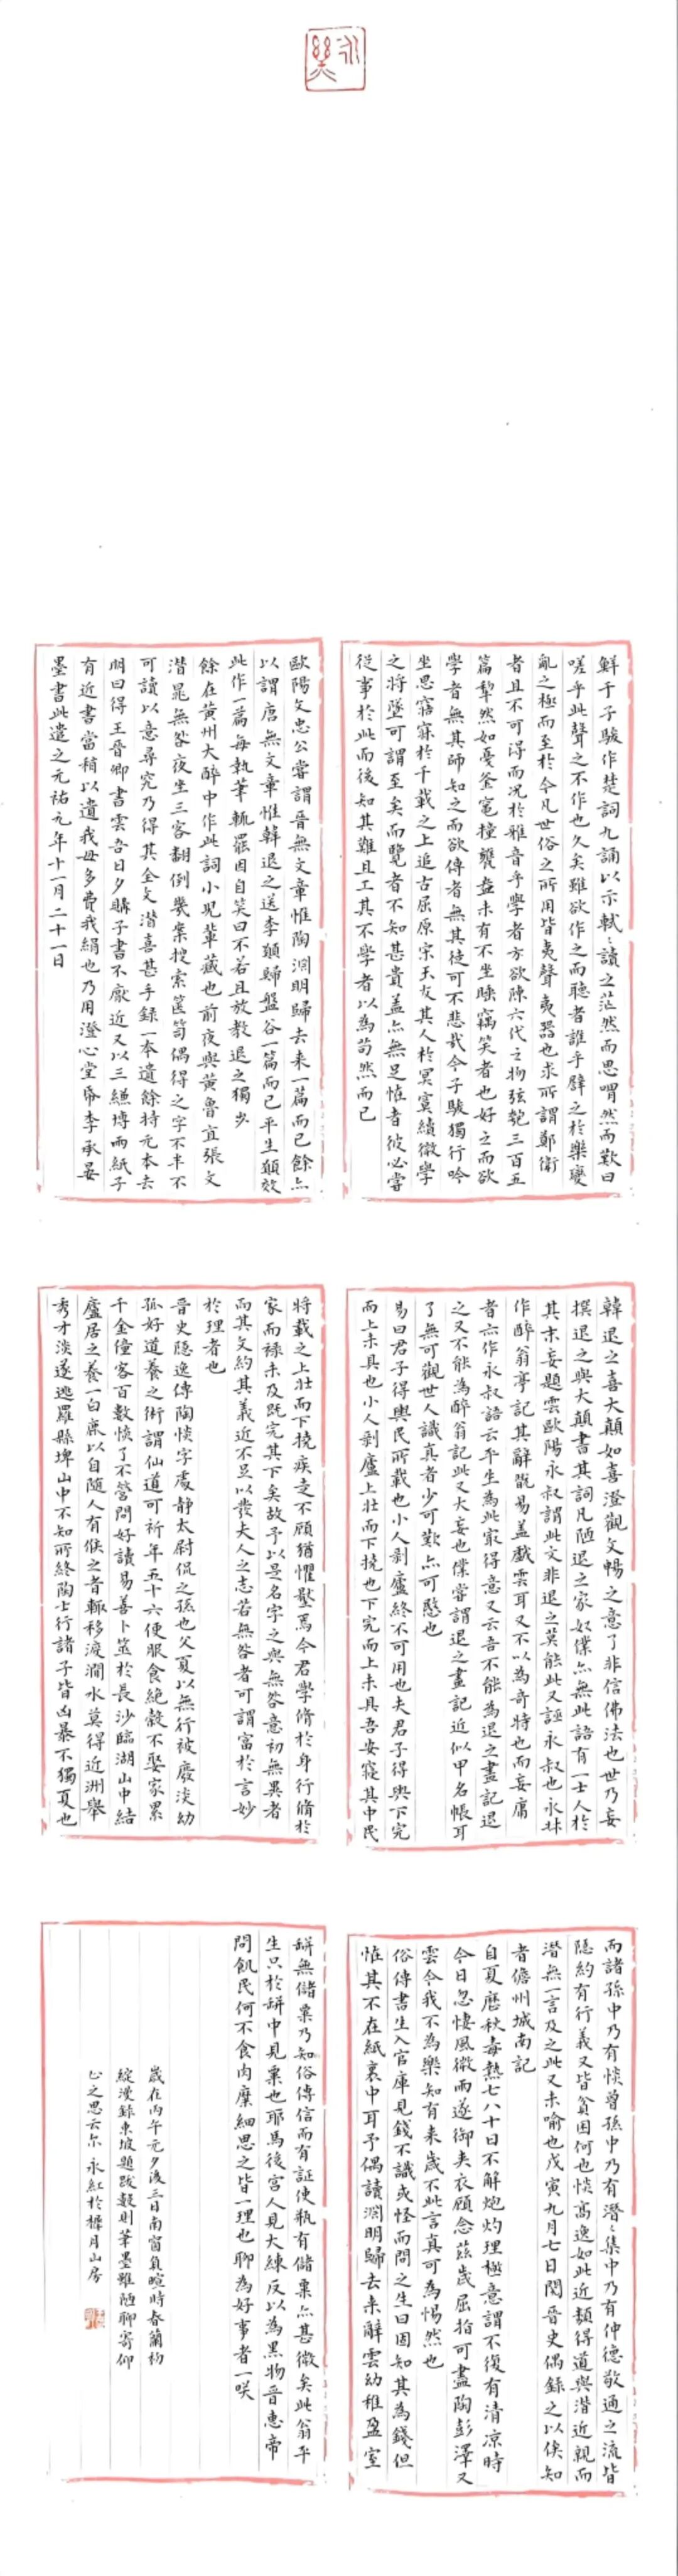 永
鮮于子駿作楚詞九誦以示軾〻讀之茫然而思喟然而歎曰
嗟乎此聲之不作也久矣雖欲作之而聽者誰乎譬之於樂變
亂之極而至於今凡世俗之所用皆夷聲夷器也求所謂鄭衛
者且不可得而況於雅音乎學者方欲陳六代之物弦匏三百五
篇犂然如戞釜竈撞甕盎未有不坐睡竊笑者也好之而欲
學者無其師知之而欲傳者無其徒可不悲哉今子駿獨行吟
坐思寤寐於千載之上追古屈原宋玉友其人於冥寞續微學
之將墜可謂至矣而覽者不知甚貴盖亦無足怪者彼必嘗
從事於此而後知其難且工其不學者以為苟然而已
歐陽文忠公嘗謂晉無文章惟陶淵明歸去来一篇而已餘亦
以謂唐無文章惟韓退之送李願歸盤谷一篇而已平生願效
此作一篇每執筆輒罷因自笑曰不若且放教退之獨步
餘在黃州大醉中作此詞小兒輩藏也前夜與黃魯直張文
潛晁無咎夜坐三客翻倒幾案搜索篋笥偶得之字不半不
可讀以意尋究乃得其全文潛喜甚手錄一本遺餘持元本去
明日得王晉卿書雲吾日夕購子書不厭近又以三縑博兩紙子
有近書當稍以遺我毋多費我絹也乃用澄心堂紙李承晏
墨書此遺之元祐元年十一月二十一日
韓退之喜大顛如喜澄觀文暢之意了非信佛法也世乃妄
撰退之與大顛書其詞凡陋退之家奴僕亦無此語有一士人於
其末妄題雲歐陽永叔謂此文非退之莫能此又誣永叔也永叔
作醉翁亭記其辭翫易盖戲雲耳又不以為奇特也而妄庸
者亦作永叔語云平生為此最得意又云吾不能為退之畫記退
之又不能為醉翁記此又大妄也僕嘗謂退之畫記近似甲名帳耳
了無可觀世人識真者少可歎亦可愍也
易曰君子得輿民所載也小人剝廬終不可用也夫君子得輿下完
而上未具也小人剝廬上壯而下撓也下完而上未具吾安寢其中民
將載之上壯而下撓疾走不顧猶懼壓焉今君學脩於身行脩於
家而祿未及既完其下矣故予以是名字之與無咎意初無異者
而其文約其義近不足以發夫人之志若無咎者可謂富於言妙
於理者也
晉史隱逸傳陶惔字處静太尉侃之孫也父夏以無行被廢淡幼
孤好道養之術謂仙道可祈年五十六便服食絶穀不娶家累
千金僮客百數惔了不營問好讀易善卜筮於長沙臨湖山中結
廬居之養一白鹿以自隨人有候之者輒移渡澗水莫得近州舉
秀才淡遂逃羅縣埤山中不知所終陶士行諸子皆凶暴不獨夏也
而諸孫中乃有惔曾孫中乃有潛〻集中乃有仲德敬通之流皆
隱約有行義又皆貧困何也惔高逸如此近類得道與潛近親而
潛無一言及之此又未喻也戊寅九月七日閲晉史偶錄之以俟知
者儋州城南記
自夏歷秋毒熱七八十日不解炮灼理極意謂不復有清凉時
今日忽悽風微雨遂御夹衣顧念茲歲屈指可盡陶彭澤又
雲今我不為樂知有来歲不此言真可為惕然也
俗傳書生入官庫見錢不識或怪而問之生曰固知其為錢但
怪其不在紙裹中耳予偶讀淵明歸去来辭雲幼稚盈室
缾無儲粟乃知俗傳信而有証使瓶有儲粟亦甚微矣此翁平
生只於缾中見粟也耶馬後宮人見大練反以為異物晉惠帝
問飢民何不食肉糜細思之皆一理也聊為好事者一咲
歲在丙午元夕後三日南窗負暄時春蘭初
綻漫錄東坡題跋數則筆墨雖陋聊寄仰
止之思云尔 永紅於 月山房